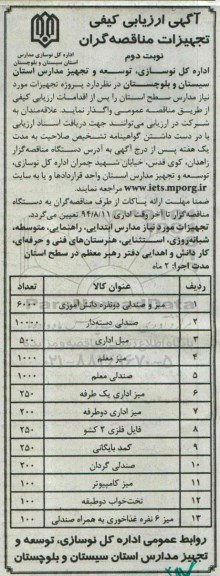 آگهی ارزیابی کیفی
تجهیزات مناقصه‌گران
نوبت دوم
اداره کل نوسازی مدارس
استان سیستان و بلوچستان
اداره کل نوسازی، توسعه و تجهیز مدارس استان
سیستان و بلوچستان در نظر دارد پروژه تجهیزات مورد
نیاز مدارس سطح استان را پس از اقدامات ارزیابی کیفی
از طریق مناقصه عمومی واگذار نماید. علاقه‌مندان به
شرکت در ارزیابی می‌توانند جهت دریافت اسناد ارزیابی
با در دست داشتن گواهینامه تشخیص صلاحیت به مدت
یک هفته پس از درج آگهی به آدرس دستگاه مناقصه‌گزار
زاهدان، کوی قدس، خیابان شهید جمران اداره کل نوسازی،
توسعه و تجهیز مدارس استان واحد قراردادها و یا به سایت
www.iets.mporg.ir مراجعه نمایند.
ضمنا مهلت ارائه پاکات از طرف مناقصه‌گران به دستگاه
مناقصه‌گزار تا آخر وقت اداری ۹۴/۸/۱۱ تعیین می‌گردد.
تجهیزات مورد نیاز مدارس ابتدایی، راهنمایی، متوسطه،
شبانه‌روزی، استثنایی، هنرستان‌های فنی و حرفه‌ای،
کار دانش و اهدایی دفتر رهبر معظم در سطح استان
مدت اجرا: ۲ ماه
ردیف عنوان کالا تعداد
۱ میز و صندلی دونفره دانش‌آموزی ۶۰۰۰
۲ صندلی دسته‌دار ۱۰۰۰۰
۳ میز اداری ۵۰۰
۴ میز معلم ۱۰۰۰
۵ صندلی معلم ۱۰۰۰
۶ میز اداری یک طرفه ۲۵۰
۷ میز اداری دوطرفه ۲۰۰
۸ فایل فلزی ۲ کشو ۲۵۰
۹ کمد بایگانی ۲۵۰
۱۰ صندلی گردان ۲۰۰
۱۱ میز کامپیوتر ۱۰۰
۱۲ تخت‌خواب دوطبقه ۱۰۰
۱۳ میز ۶ نفره غذاخوری به همراه صندلی ۱۰۰
روابط عمومی اداره کل نوسازی، توسعه و
تجهیز مدارس استان سیستان و بلوچستان